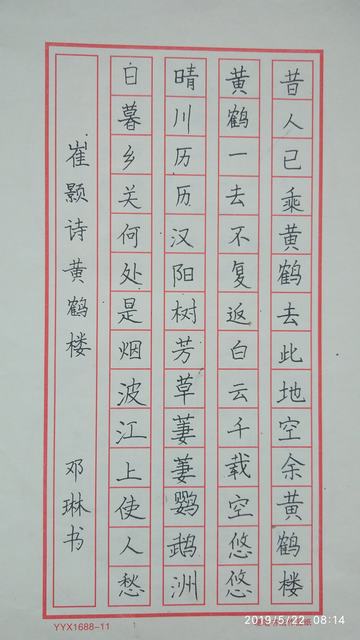 昔人已乘黄鹤去此地空余黄鹤楼
黄鹤一去不复返白云千载空悠悠
晴川历历汉阳树芳草萋萋鹦鹉洲
日暮乡关何处是烟波江上使人愁
崔颢诗黄鹤楼 邓琳书
YYX1688-11
2019/5/22 08:14